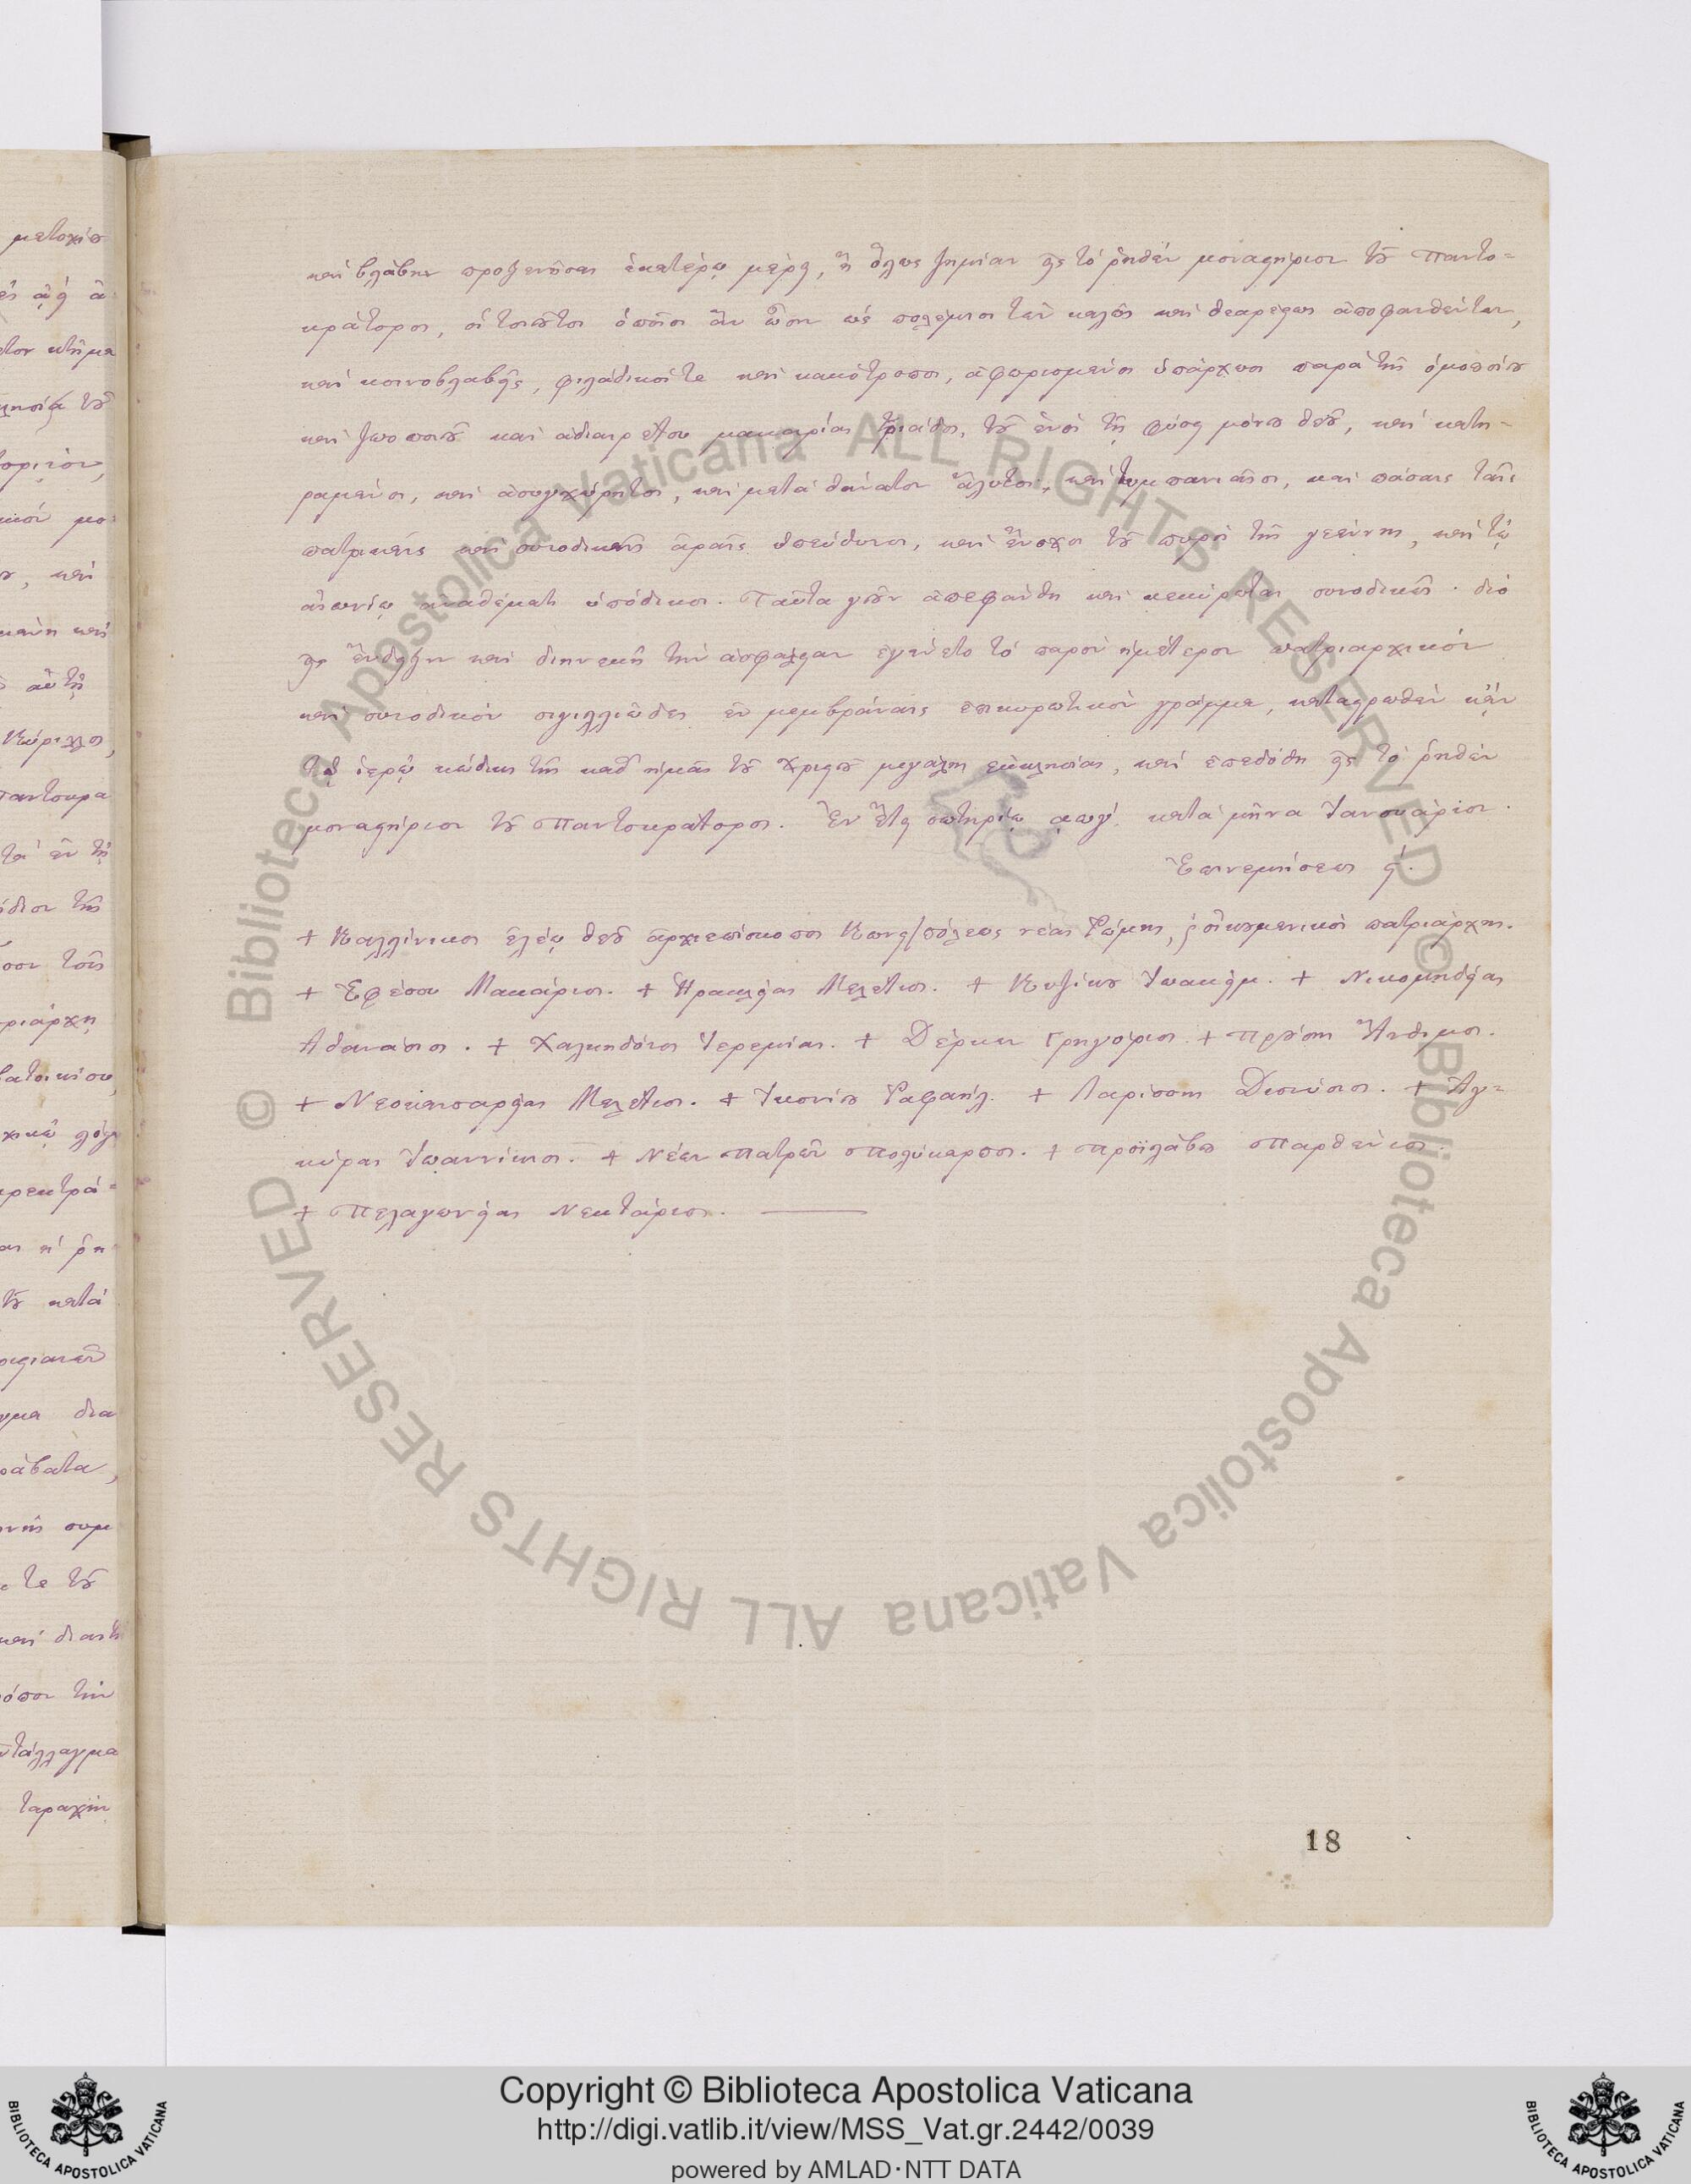 καὶ βλάβην προξενῆσαι ἑκατέρῳ μέρει, ἢ ὅλως ζημίαν εἰς τὸ ῥηθὲν μοναστήριον τοῦ Παντο=
κράτορος, οἱ τοιοῦτοι ὁποῖοι ἂν ὦσιν ὡς πολέμιοι τῶν καλῶς καὶ θεαρέστως ἀποφανθέντων,
καὶ κοινοβλαβεῖς, φιλάδικοί τε καὶ κακότροποι, ἀφωρισμένοι ὑπάρχωσι παρὰ τῆς ὁμοουσίου
καὶ ζωοποιοῦ καὶ ἀδιαιρέτου μακαρίας Τριάδος, τοῦ ἑνὸς τῇ φύσει μόνου θεοῦ, καὶ κατη-
ραμένοι, καὶ ἀσυγχώρητοι, καὶ μετὰ θάνατον ἄλυτοι, καὶ τυμπανιαῖοι, καὶ πάσαις ταῖς
πατρικαῖς καὶ συνοδικαῖς ἀραῖς ὑπεύθυνοι, καὶ ἔνοχοι τοῦ πυρὸς τῆς γεέννης, καὶ τῷ
αἰωνίῳ ἀναθέματι ὑπόδικοι. Ταῦτα γοῦν ἀπεφάνθη καὶ κεκύρωται συνοδικῶς· διὸ
εἰς ἔνδειξιν καὶ διηνεκῆ τὴν ἀσφάλειαν ἐγένετο τὸ παρὸν ἡμέτερον πατριαρχικὸν
καὶ συνοδικὸν σιγιλλιῶδες ἐν μεμβράναις ἐπικυρωτικὸν γράμμα, καταστρωθὲν κἀν
τῷ ἱερῷ κώδικι τῆς καθ' ἡμᾶς τοῦ Χριστοῦ μεγάλης ἐκκλησίας, καὶ ἐπεδόθη εἰς τὸ ῥηθὲν
μοναστήριον τοῦ Παντοκράτορος. Ἐν ἔτει σωτηρίῳ αωγ΄. κατὰ μῆνα Ἰανουάριον.
Ἐπινεμήσεως ϛ΄.
+ Καλλίνικος ἐλέῳ θεοῦ ἀρχιεπίσκοπος Κωνστ/πόλεως νέας Ῥώμης, ϗ οἰκουμενικὸς πατριάρχης.
+ Ἐφέσου Μακάριος. + Ἡρακλείας Μελέτιος. + Κυζίκου Ἰωακείμ. + Νικομηδείας
Ἀθανάσιος. + Χαλκηδόνος Ἱερεμίας. + Δέρκων Γρηγόριος. + Προύσης Ἄνθιμος.
+ Νεοκαισαρείας Μελέτιος. + Ἰκονίου Ῥαφαήλ. + Λαρίσσης Διονύσιος. + Ἀγ=
κύρας Ἰωαννίκιος. + Νέων Πατρῶν Πολύκαρπος. + Προϊλάβου Παρθένιος
+ Πελαγωνείας Νεκτάριος. ———
18
Copyright © Biblioteca Apostolica Vaticana
http://digi.vatlib.it/view/MSS_Vat.gr.2442/0039
powered by AMLAD·NTT DATA